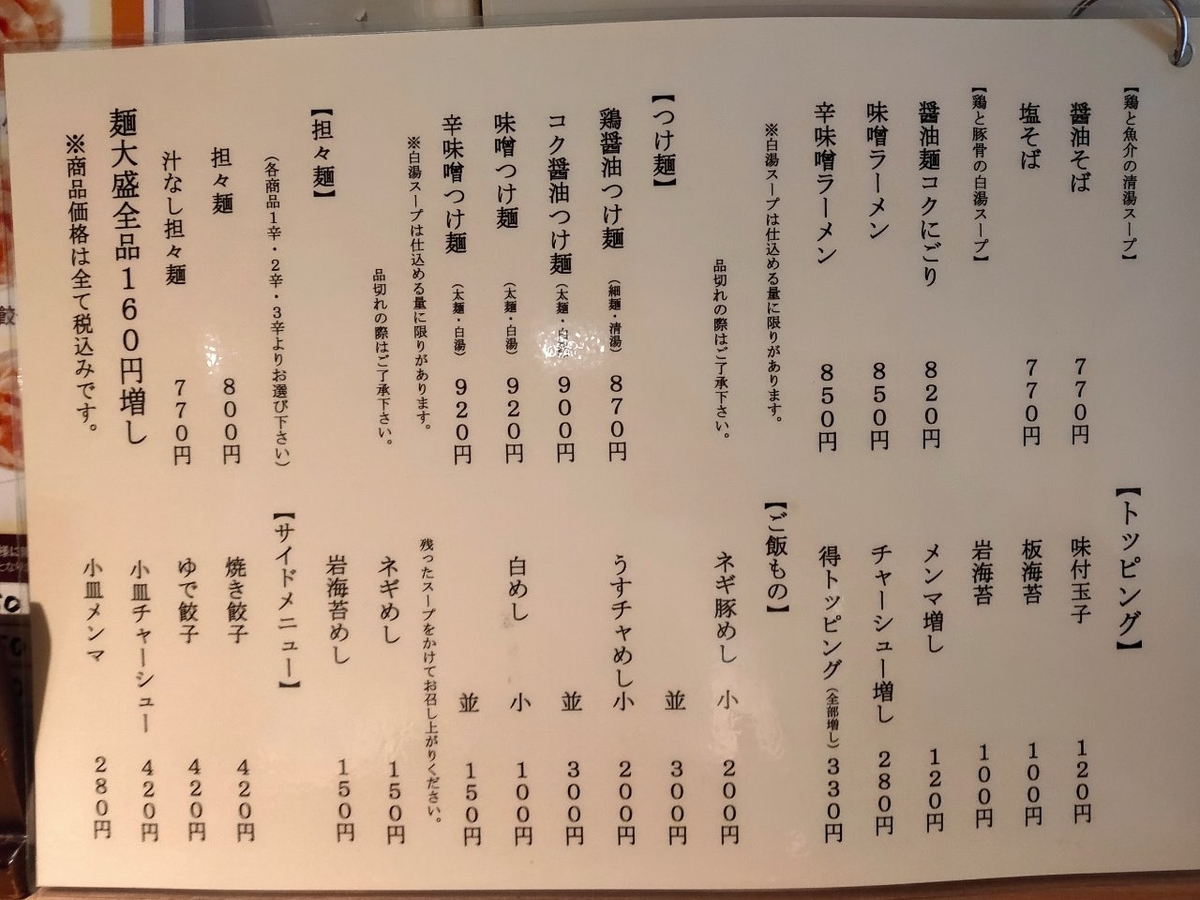 【鶏と魚介の清湯スープ】
醤油そば 770円
塩そば 770円
【鶏と豚骨の白湯スープ】
醤油麺コクにごり 820円
味噌ラーメン 850円
辛味噌ラーメン 850円
※白湯スープは仕込める量に限りがあります。
品切れの際はご了承下さい。
【つけ麺】
鶏醤油つけ麺 (細麺・清湯) 870円
コク醤油つけ麺 (太麺・白湯) 900円
味噌つけ麺 (太麺・白湯) 920円
辛味噌つけ麺 (太麺・白湯) 920円
※白湯スープは仕込める量に限りがあります。
品切れの際はご了承下さい。
【担々麺】
(各商品1辛・2辛・3辛よりお選び下さい)
担々麺 800円
汁なし担々麺 770円
麺大盛全品160円増し
※商品価格は全て税込みです。
【トッピング】
味付玉子 120円
板海苔 100円
岩海苔 100円
メンマ増し 120円
チャーシュー増し 280円
得トッピング(全部増し) 330円
【ご飯もの】
ネギ豚めし 小 200円
並 300円
うすチャめし 小 200円
並 300円
白めし 小 100円
並 150円
残ったスープをかけてお召し上がりください。
ネギめし 150円
岩海苔めし 150円
【サイドメニュー】
焼き餃子 420円
ゆで餃子 420円
小皿チャーシュー 420円
小皿メンマ 280円